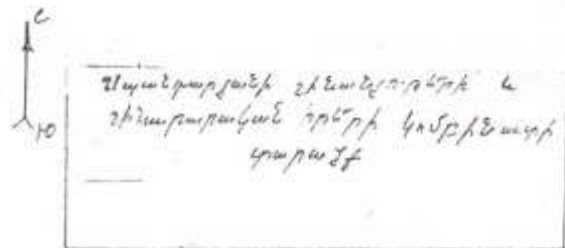 С
Ю
Սպանդարյանի շինանյութերի և
շինարարական իրերի կոմբինատի
տարածք